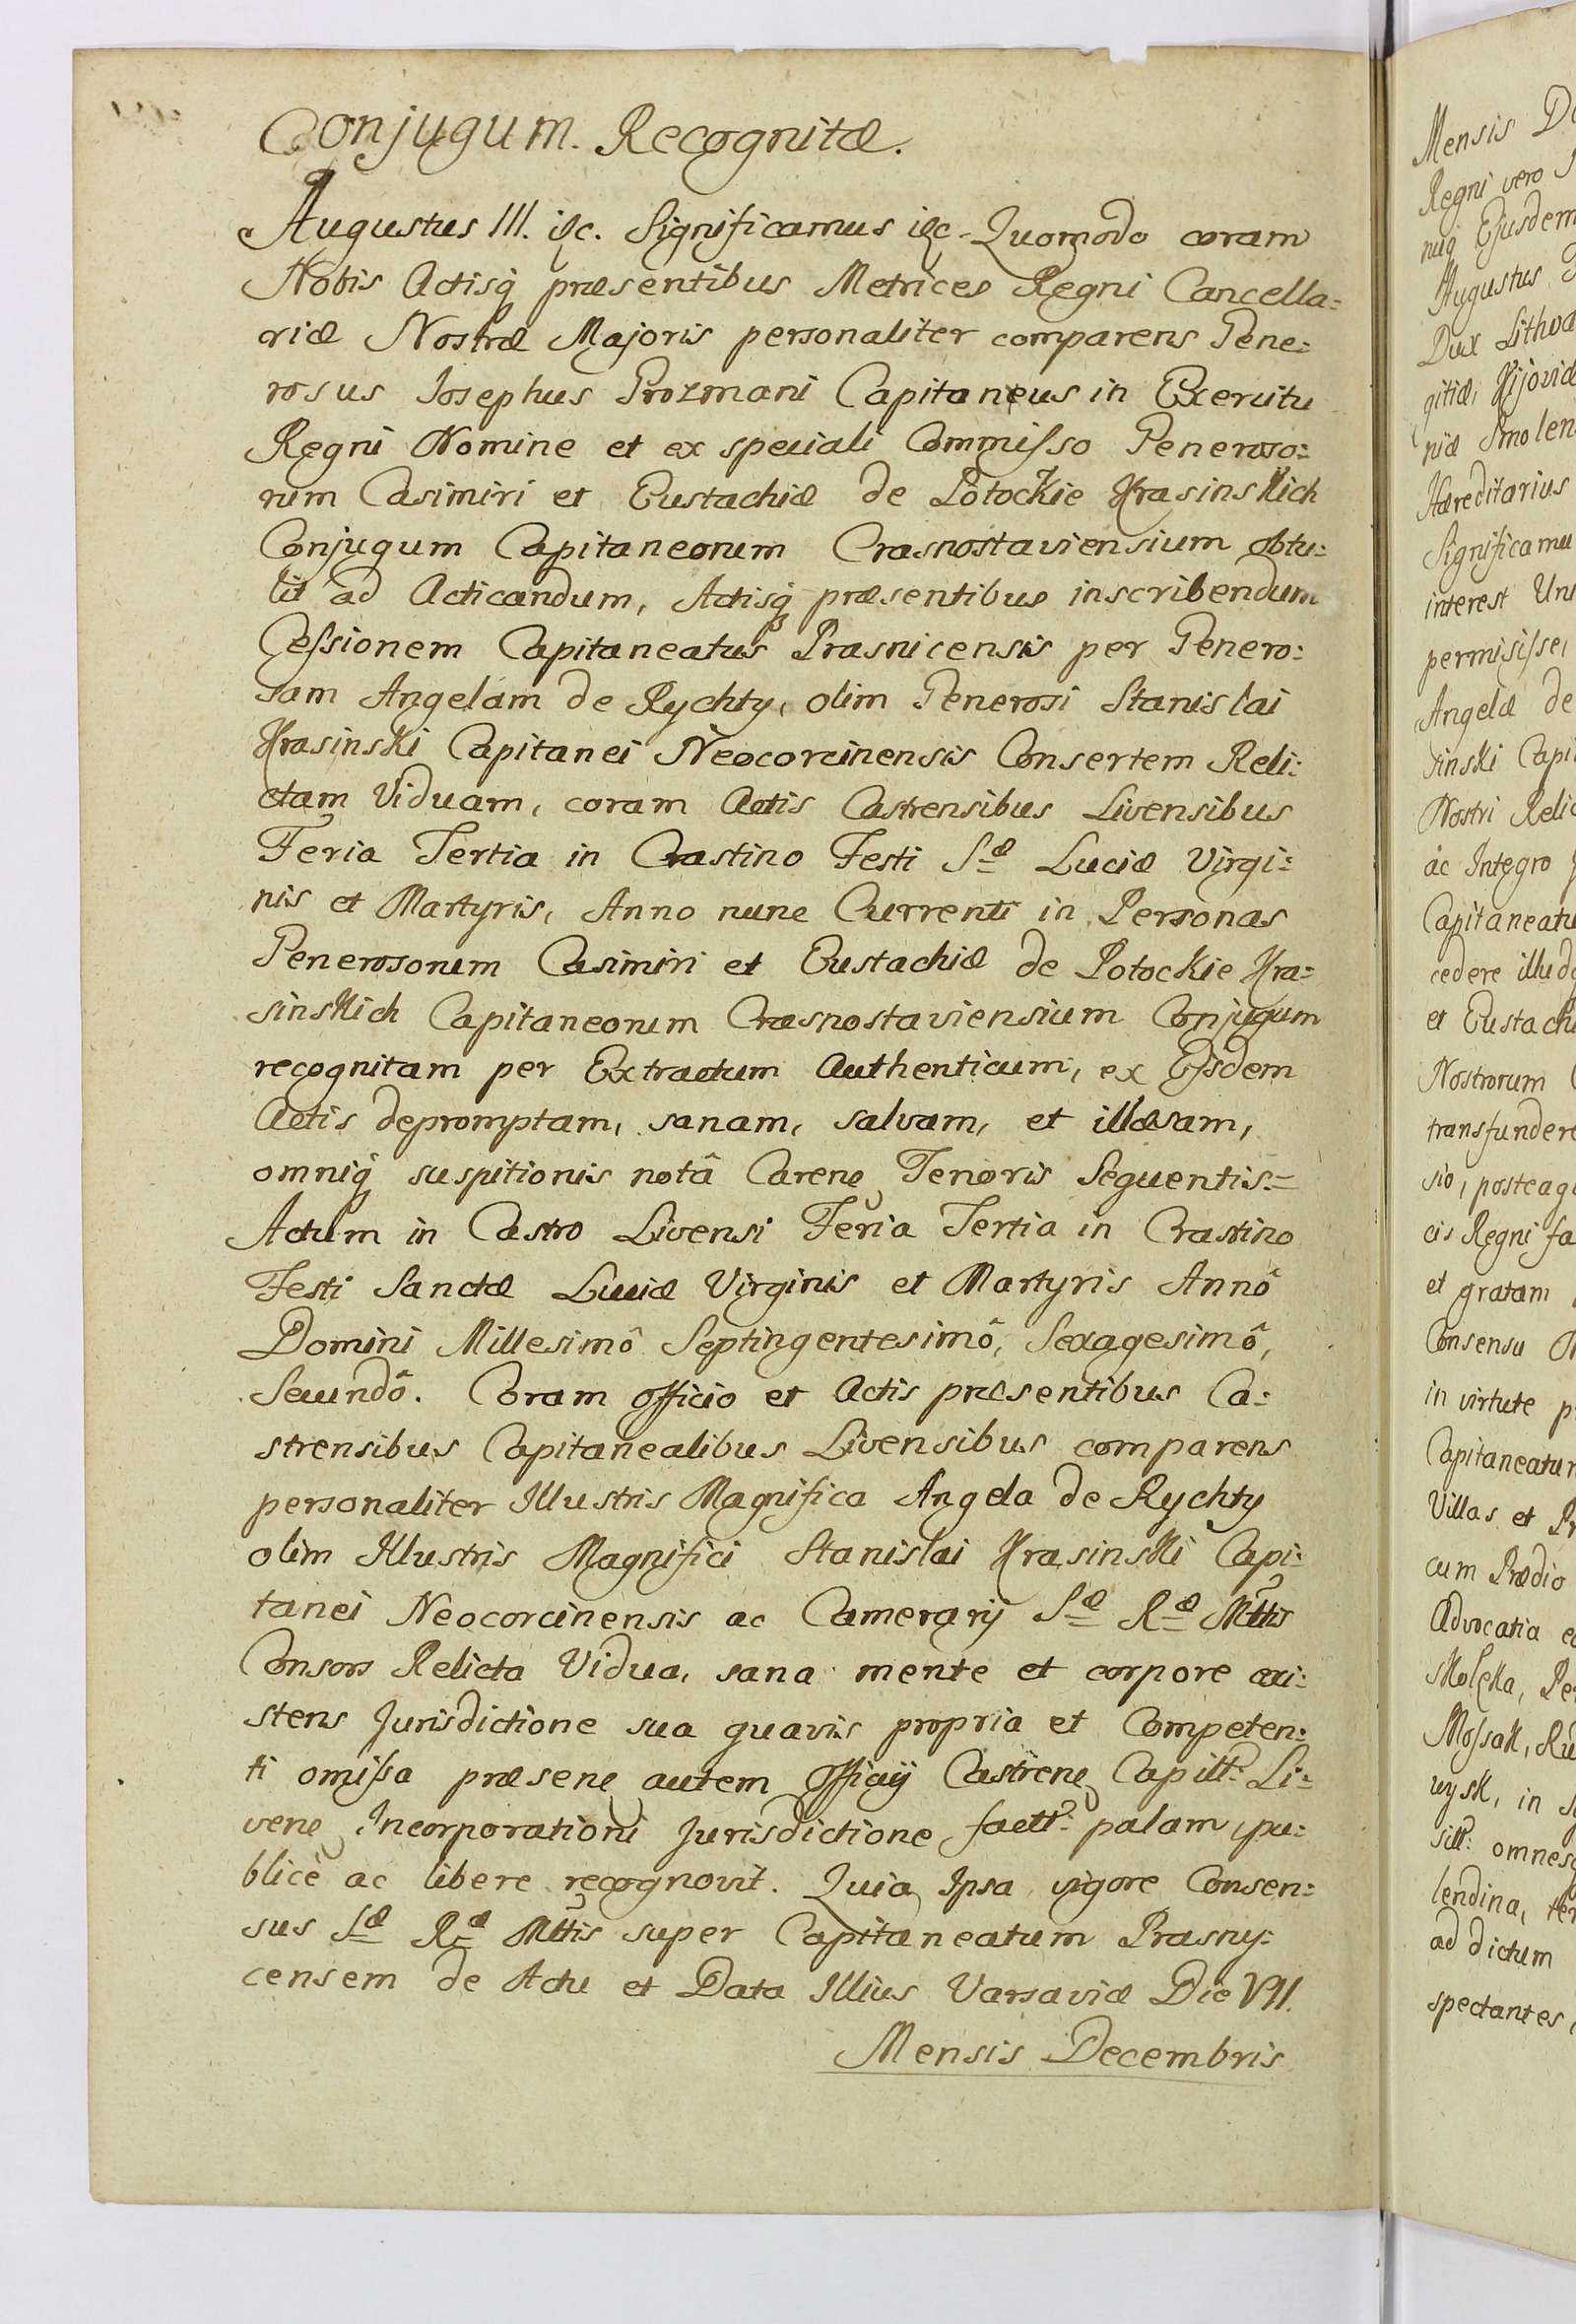 Conjugum. Recognitæ.
Augustus III. &c. Significamus &c. Quomodo coram
Nobis Actisq præsentibus Metrices Regni Cancella=
riæ Nostræ Majoris personaliter comparens Gene=
rosus Josephus Prozmani Capitaneus in Exercitu
Regni Nomine et ex speciali Commisso Generoso=
rum Casimiri et Eustachiæ de Potockie Krasinskich
Conjugum Capitaneorum Crasnostaviensium obtu=
lit ad Acticandum, Actisq præsentibus inscribendum
Cessionem Capitaneatus Prasnicensis per Genero=
sam Angelam de Rychty, olim Generosi Stanislai
Krasinski Capitanei Neocorcinensis Consertem Reli=
ctam Viduam, coram Actis Castrensibus Livensibus
Feria Tertia in Crastino Festi Sæ Luciæ Virgi=
nis et Martyris, Anno nunc Currenti in Personas
Generosorum Casimiri et Eustachiæ de Potockie Kra=
sinskich Capitaneorum Crasnostaviensium Conjugum
recognitam per Extractum Authenticum, ex Ejsdem
Actis depromptam, sanam, salvam, et illæsam,
omniq suspitionis notâ Caren Tenoris Sequentis=
Actum in Castro Livensi Feria Tertia in Crastino
Festi Sanctæ Luciæ Virginis et Martyris Annô
Domini Millesimô Septingentesimô, Sexagesimô,
Secundô. Coram officio et Actis præsentibus Ca=
strensibus Capitanealibus Livensibus comparens
personaliter Illustris Magnifica Angela de Rychty
olim Illustris Magnifici Stanislai Krasinski Capi=
tanei Neocorcinensis ac Camerarij Sæ Ræ Mttis
Consors Relicta Vidua, sana mente et corpore exi=
stens Jurisdictione sua quavis propria et Competen=
ti omissa præsen autem Officij Castren Capitt: Li=
ven Incorporationi Jurisdictione factt: palam, pu=
blicè ac libere recognovit. Quia Ipsa vigore Consen=
sus Sæ Ræ Mttis super Capitaneatum Prasny=
censem de Actu et Data Illius Varsaviæ Die VII.
Mensis Decembris
Mensis
Regni vero
niq Ejusdem
Augustus
Dux Lithva
gitiæ, Kijoviæ
niæ Smolen
Hæreditarius
Significamu
interest Uni
permisisse,
Angelæ de
sinski Capi
Nostri Relic
ac Integro
Capitaneatu
cedere illudq
et Eustach
Nostrorum
transfundere
sio, posteaq
cis Regni fa
et gratam
Consensu
in virtute p
Capitaneatum
Villas et Pr
cum Prædio
Advocatia
Molęka,
Mossak, Ru
uysk, in
sitt: omnesq
lendina,
ad dictum
spectantes